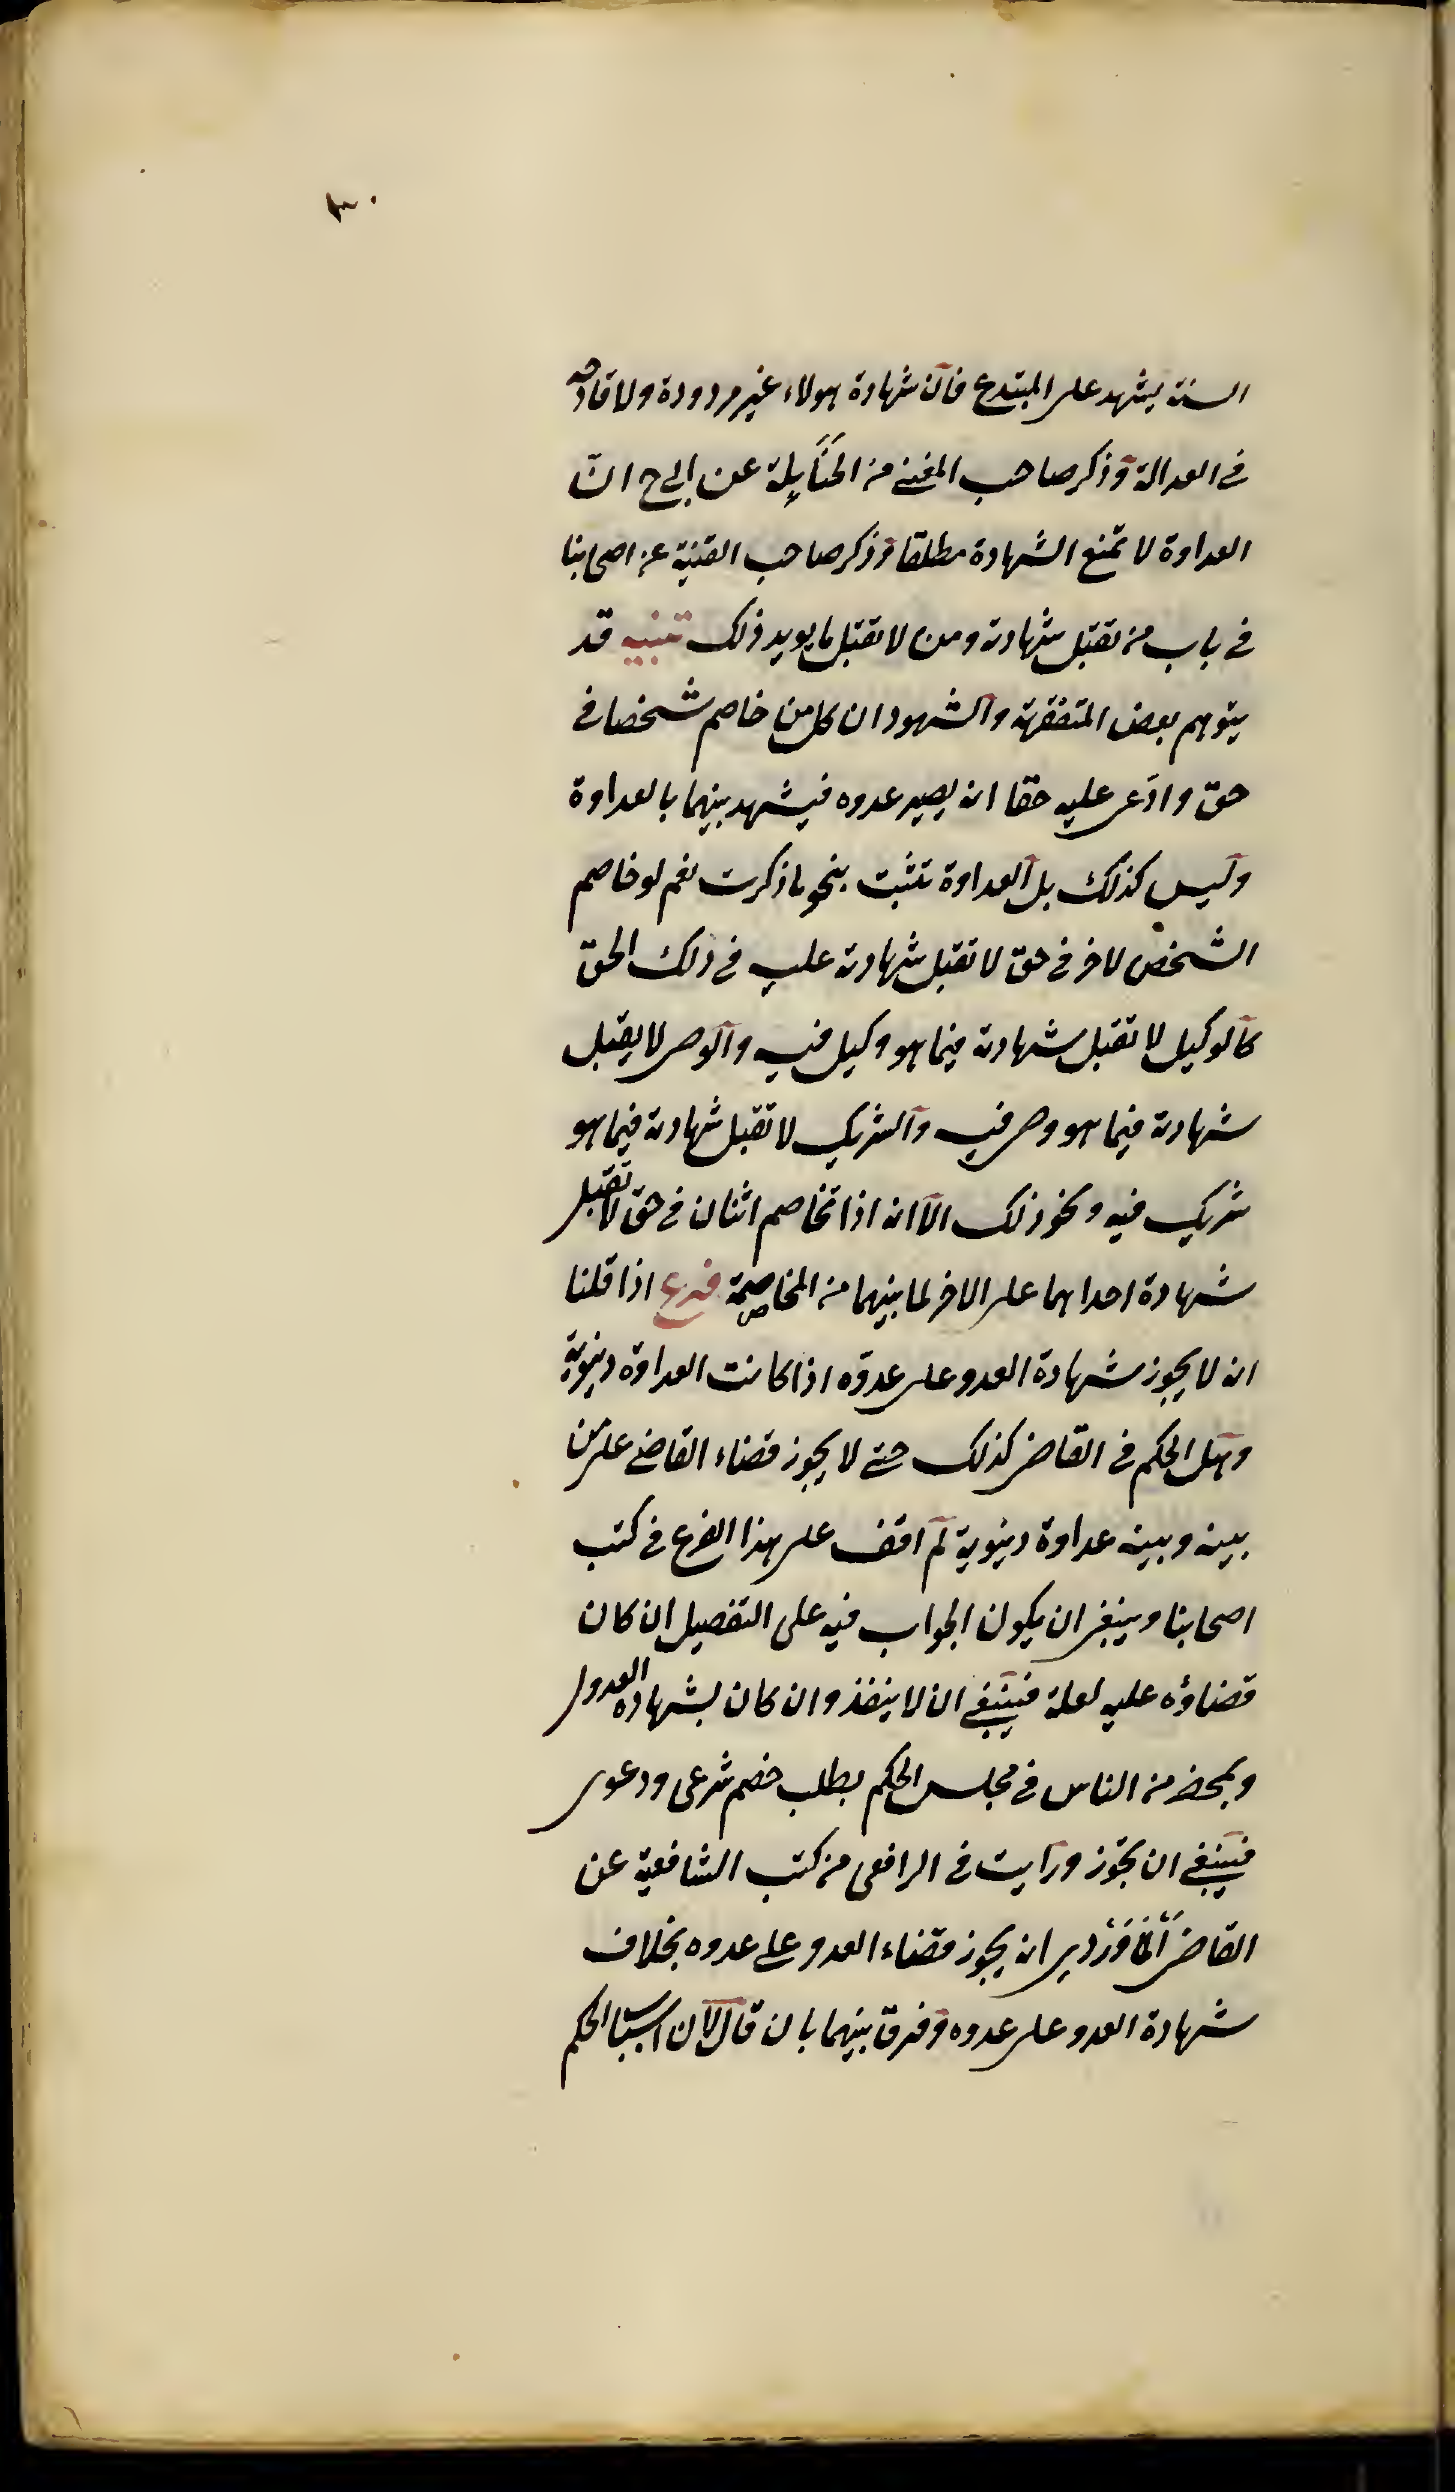 ٣٠
السنة يشهد على المبتدع فان شهادة هولاء غير مردودة ولا قادحه
فى العدالة وذكر صاحب المغنى من الحَنَابِلة عن ابى ح انّ
العداوة لا تمنع الشهادة مطلقا وذكر صاحب القنية عن اصحابنا
فى باب من تقبل شهادته ومن لا تقبل ما يويد ذلك تنبيه قد
يتوهم بعض المتفقهة والشهود ان كل من خاصم شخصا فى
حق وادّعى عليه حقا انه يصير عدوه فيشهد بينهما بالعداوة
وليس كذلك بل العداوة تثبت بنحو ما ذكرت نعم لو خاصم
الشخص لاخر فى حق لا تقبل شهادته عليه فى ذلك الحق
كالوكيل لا تقبل شهادته فيما هو وكيل فيه والوصى لا يقبل
شهادته فيما هو وصى فيه والشريك لا تقبل شهادته فيما هو
شريك فيه ونحو ذلك الا انه اذا تخاصم اثنان فى حق لا تقبل
شهادة احداهما على الاخر لما بينهما من المخاصمة فرع اذا قلنا
انه لا يجوز شهادة العدو على عدوّه اذا كانت العداوة دينوية
وهل الحكم فى القاضى كذلك حتى لا يجوز قضاء القاضى على من
بينه وبينه عداوة دينوية لم اقف على هذا الفرع فى كتب
اصحابنا وينبغى ان يكون الجواب فيه على التفصيل ان كان
قضاؤه عليه لعلة فينبغى ان لا ينفذ وان كان بشهادة العدول
وبمحضر من الناس فى مجلس الحكم بطلب خصم شرعى ودعوى
فينبغى ان يجوز ورايت فى الرافعى من كتب الشافعية عن
القاضى المَاوَرْدِى انه يجوز قضاء العدو على عدوه بخلاف
شهادة العدو على عدوه وفرق بينهما بان قال لان اسباب الحكم